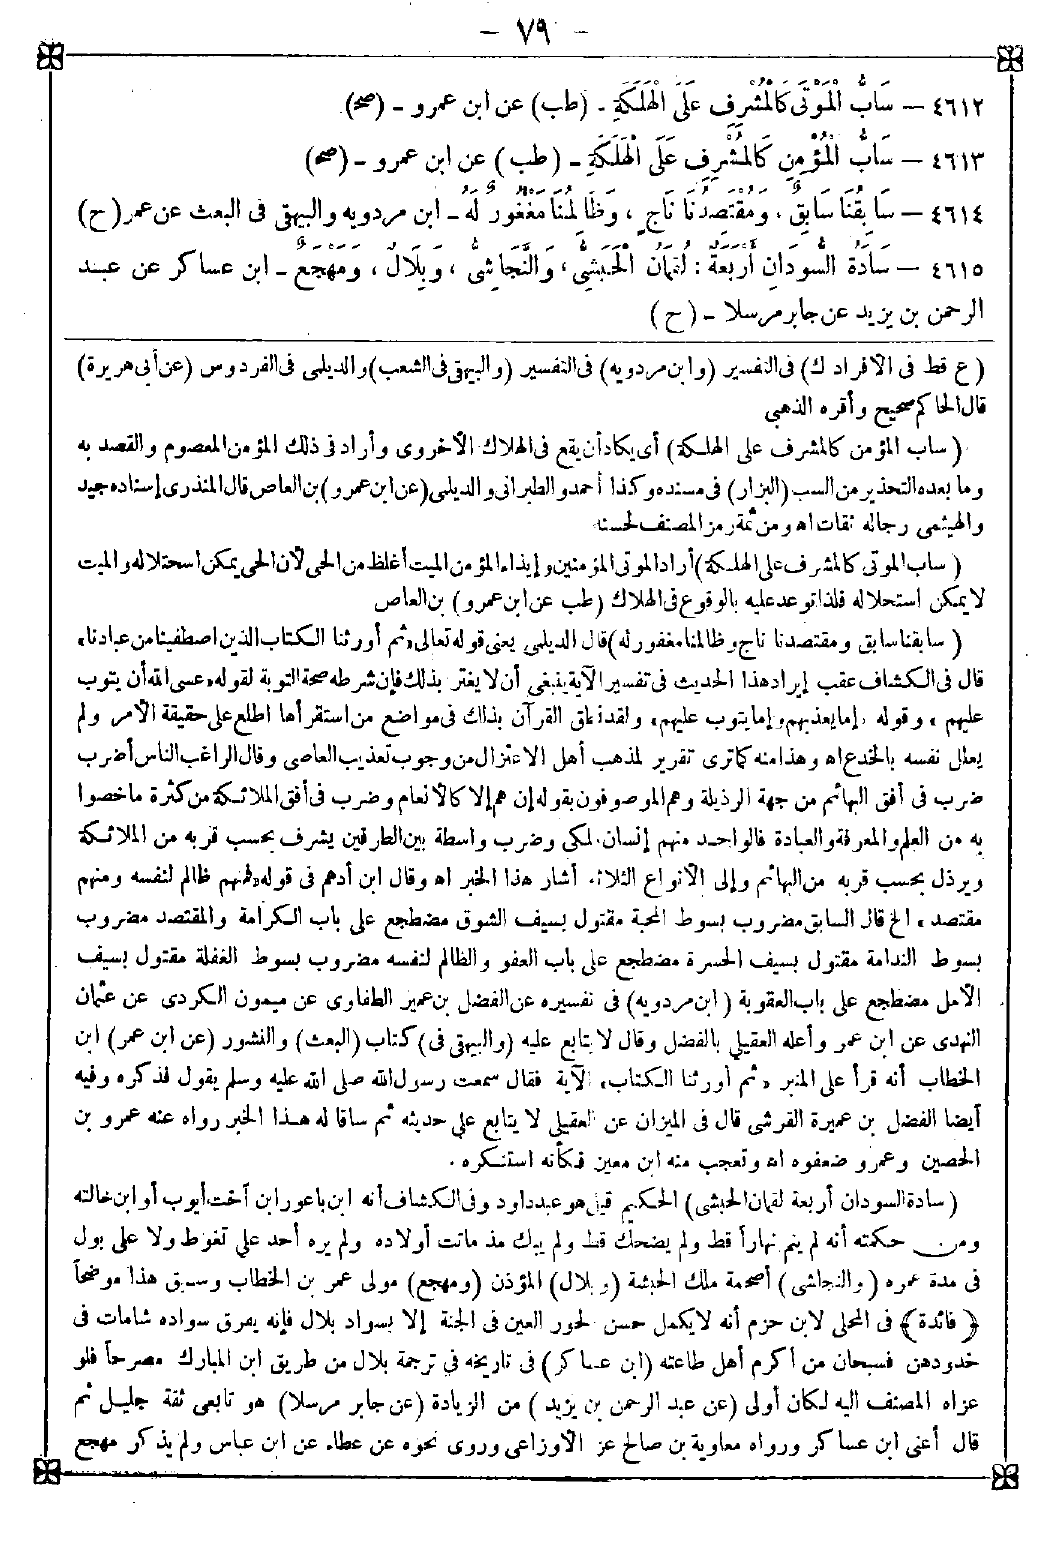 - ٧٩ -
٤٦١٢ — سَابُّ الْمَوْتَى كَالْمُشْرِفِ عَلَى الْهَلَكَةِ - (طب) عن ابن عمرو - (صح)
٤٦١٣ — سَابُّ الْمُؤْمِنِ كَالْمُشْرِفِ عَلَى الْهَلَكَةِ - (طب) عن ابن عمرو - (صح)
٤٦١٤ — سَابِقُنَا سَابِقٌ، وَمُقْتَصِدُنَا نَاجٍ، وَظَالِمُنَا مَغْفُورٌ لَهُ - ابن مردويه والبيهقى فى البعث عن عمر (ح)
٤٦١٥ — سَادَةُ السُّودَانِ أَرْبَعَةٌ: لُقْمَانُ الْحَبَشِيُّ، وَالنَّجَاشِيُّ، وَبِلَالٌ، وَمِهْجَعٌ - ابن عساكر عن عبد
الرحمن بن يزيد عن جابر مرسلا - (ح)
(ع قط فى الأفراد ك) فى التفسير (وابن مردويه) فى التفسير (والبيهقى فى الشعب) والديلمى فى الفردوس (عن أبى هريرة)
قال الحاكم صحيح وأقره الذهبي
(ساب المؤمن كالمشرف على الهلكة) أى يكاد أن يقع فى الهلاك الأخروى وأراد فى ذلك المؤمن المعصوم والقصد به
وما بعده التحذير من السب (البزار) فى مسنده وكذا أحمد والطبرانى والديلمى (عن ابن عمرو) بن العاص قال المنذرى إسناده جيد
والهيثمى رجاله ثقات اه ومن ثمة رمز المصنف لحسنه
(ساب الموتى كالمشرف على الهلكة) أراد الموتى المؤمنين وإيذاء المؤمن الميت أغلظ من الحى لأن الحى يمكن استحلاله والميت
لا يمكن استحلاله فلذا توعد عليه بالوقوع فى الهلاك (طب عن ابن عمرو) بن العاص
(سابقنا سابق ومقتصدنا ناج وظالمنا مغفور له) قال الديلمى يعنى قوله تعالى «ثم أورثنا الكتاب الذين اصطفينا من عبادنا»
قال فى الكشاف عقب إيراد هذا الحديث فى تفسير الآية ينبغى أن لا يغتر بذلك فإن شرطه صحة التوبة لقوله «عسى الله أن يتوب
عليهم» وقوله «إما يعذبهم وإما يتوب عليهم» ولقد نطق القرآن بذلك فى مواضع من استقرأها اطلع على حقيقة الأمر ولم
يعلل نفسه بالخدع اه وهذا منه كما ترى تقرير لمذهب أهل الاعتزال من وجوب تعذيب العاصى وقال الراغب الناس أضرب
ضرب فى أفق البهائم من جهة الرذيلة وهم الموصوفون بقوله إن هم إلا كالأنعام وضرب فى أفق الملائكة من كثرة ما خصوا
به من العلم والمعرفة والعبادة فالواحد منهم إنسان ملكى وضرب واسطة بين الطرفين يشرف بحسب قربه من الملائكة
ويرذل بحسب قربه من البهائم وإلى الأنواع الثلاثة أشار هذا الخبر اه وقال ابن أدهم فى قوله «فمنهم ظالم لنفسه ومنهم
مقتصد» الخ قال السابق مضروب بسوط المحبة مقتول بسيف الشوق مضطجع على باب الكرامة والمقتصد مضروب
بسوط الندامة مقتول بسيف الحسرة مضطجع على باب العفو والظالم لنفسه مضروب بسوط الغفلة مقتول بسيف
الأمل مضطجع على باب العقوبة (ابن مردويه) فى تفسيره عن الفضل بن عمير الطفاوى عن ميمون الكردى عن عثمان
النهدى عن ابن عمر وأعله العقيلى بالفضل وقال لا يتابع عليه (والبيهقى فى) كتاب (البعث) والنشور (عن ابن عمر) ابن
الخطاب أنه قرأ على المنبر «ثم أورثنا الكتاب» الآية فقال سمعت رسول الله صلى الله عليه وسلم يقول فذكره وفيه
أيضا الفضل بن عميرة القرشى قال فى الميزان عن العقيلى لا يتابع على حديثه ثم ساقا له هذا الخبر رواه عنه عمرو بن
الحصين وعمرو ضعفوه اه وتعجب منه ابن معين فكأنه استنكره .
(سادة السودان أربعة لقمان الحبشى) الحكيم قيل هو عبد داود وفى الكشاف أنه ابن باعور ابن أخت أيوب أو ابن خالته
ومن حكمته أنه لم ينم نهاراً قط ولم يضحك قط ولم يبك مذ ماتت أولاده ولم يره أحد على تغوط ولا على بول
فى مدة عمره (والنجاشى) أصحمة ملك الحبشة (وبلال) المؤذن (ومهجع) مولى عمر بن الخطاب وسبق هذا موضحاً
﴿فائدة﴾ فى المحلى لابن حزم أنه لا يكمل حسن لحور العين فى الجنة إلا بسواد بلال فإنه يفرق سواده شامات فى
خدودهن فسبحان من أكرم أهل طاعته (ابن عساكر) فى تاريخه فى ترجمة بلال من طريق ابن المبارك مصرحاً فلو
عزاه المصنف اليه لكان أولى (عن عبد الرحمن بن يزيد) من الزيادة (عن جابر مرسلا) هو تابعى ثقة جليل ثم
قال أعنى ابن عساكر ورواه معاوية بن صالح عن الأوزاعى وروى نحوه عن عطاء عن ابن عباس ولم يذكر مهجع